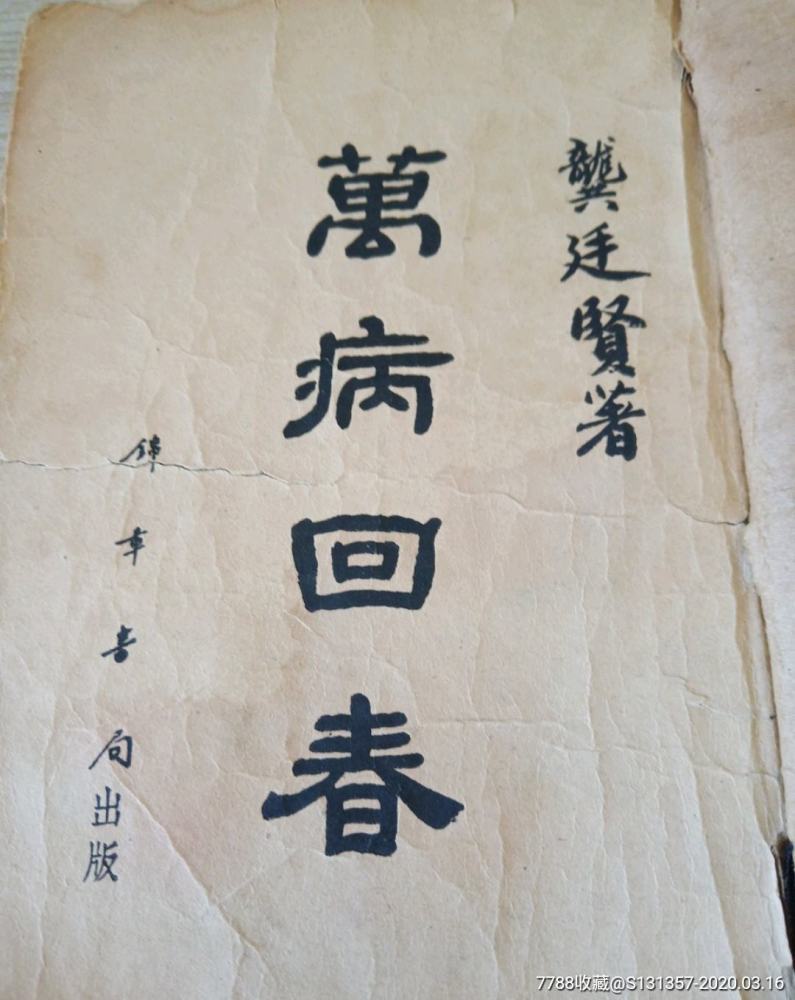 龔廷賢著
萬病回春
錦章書局出版
7788收藏@S131357-2020.03.16